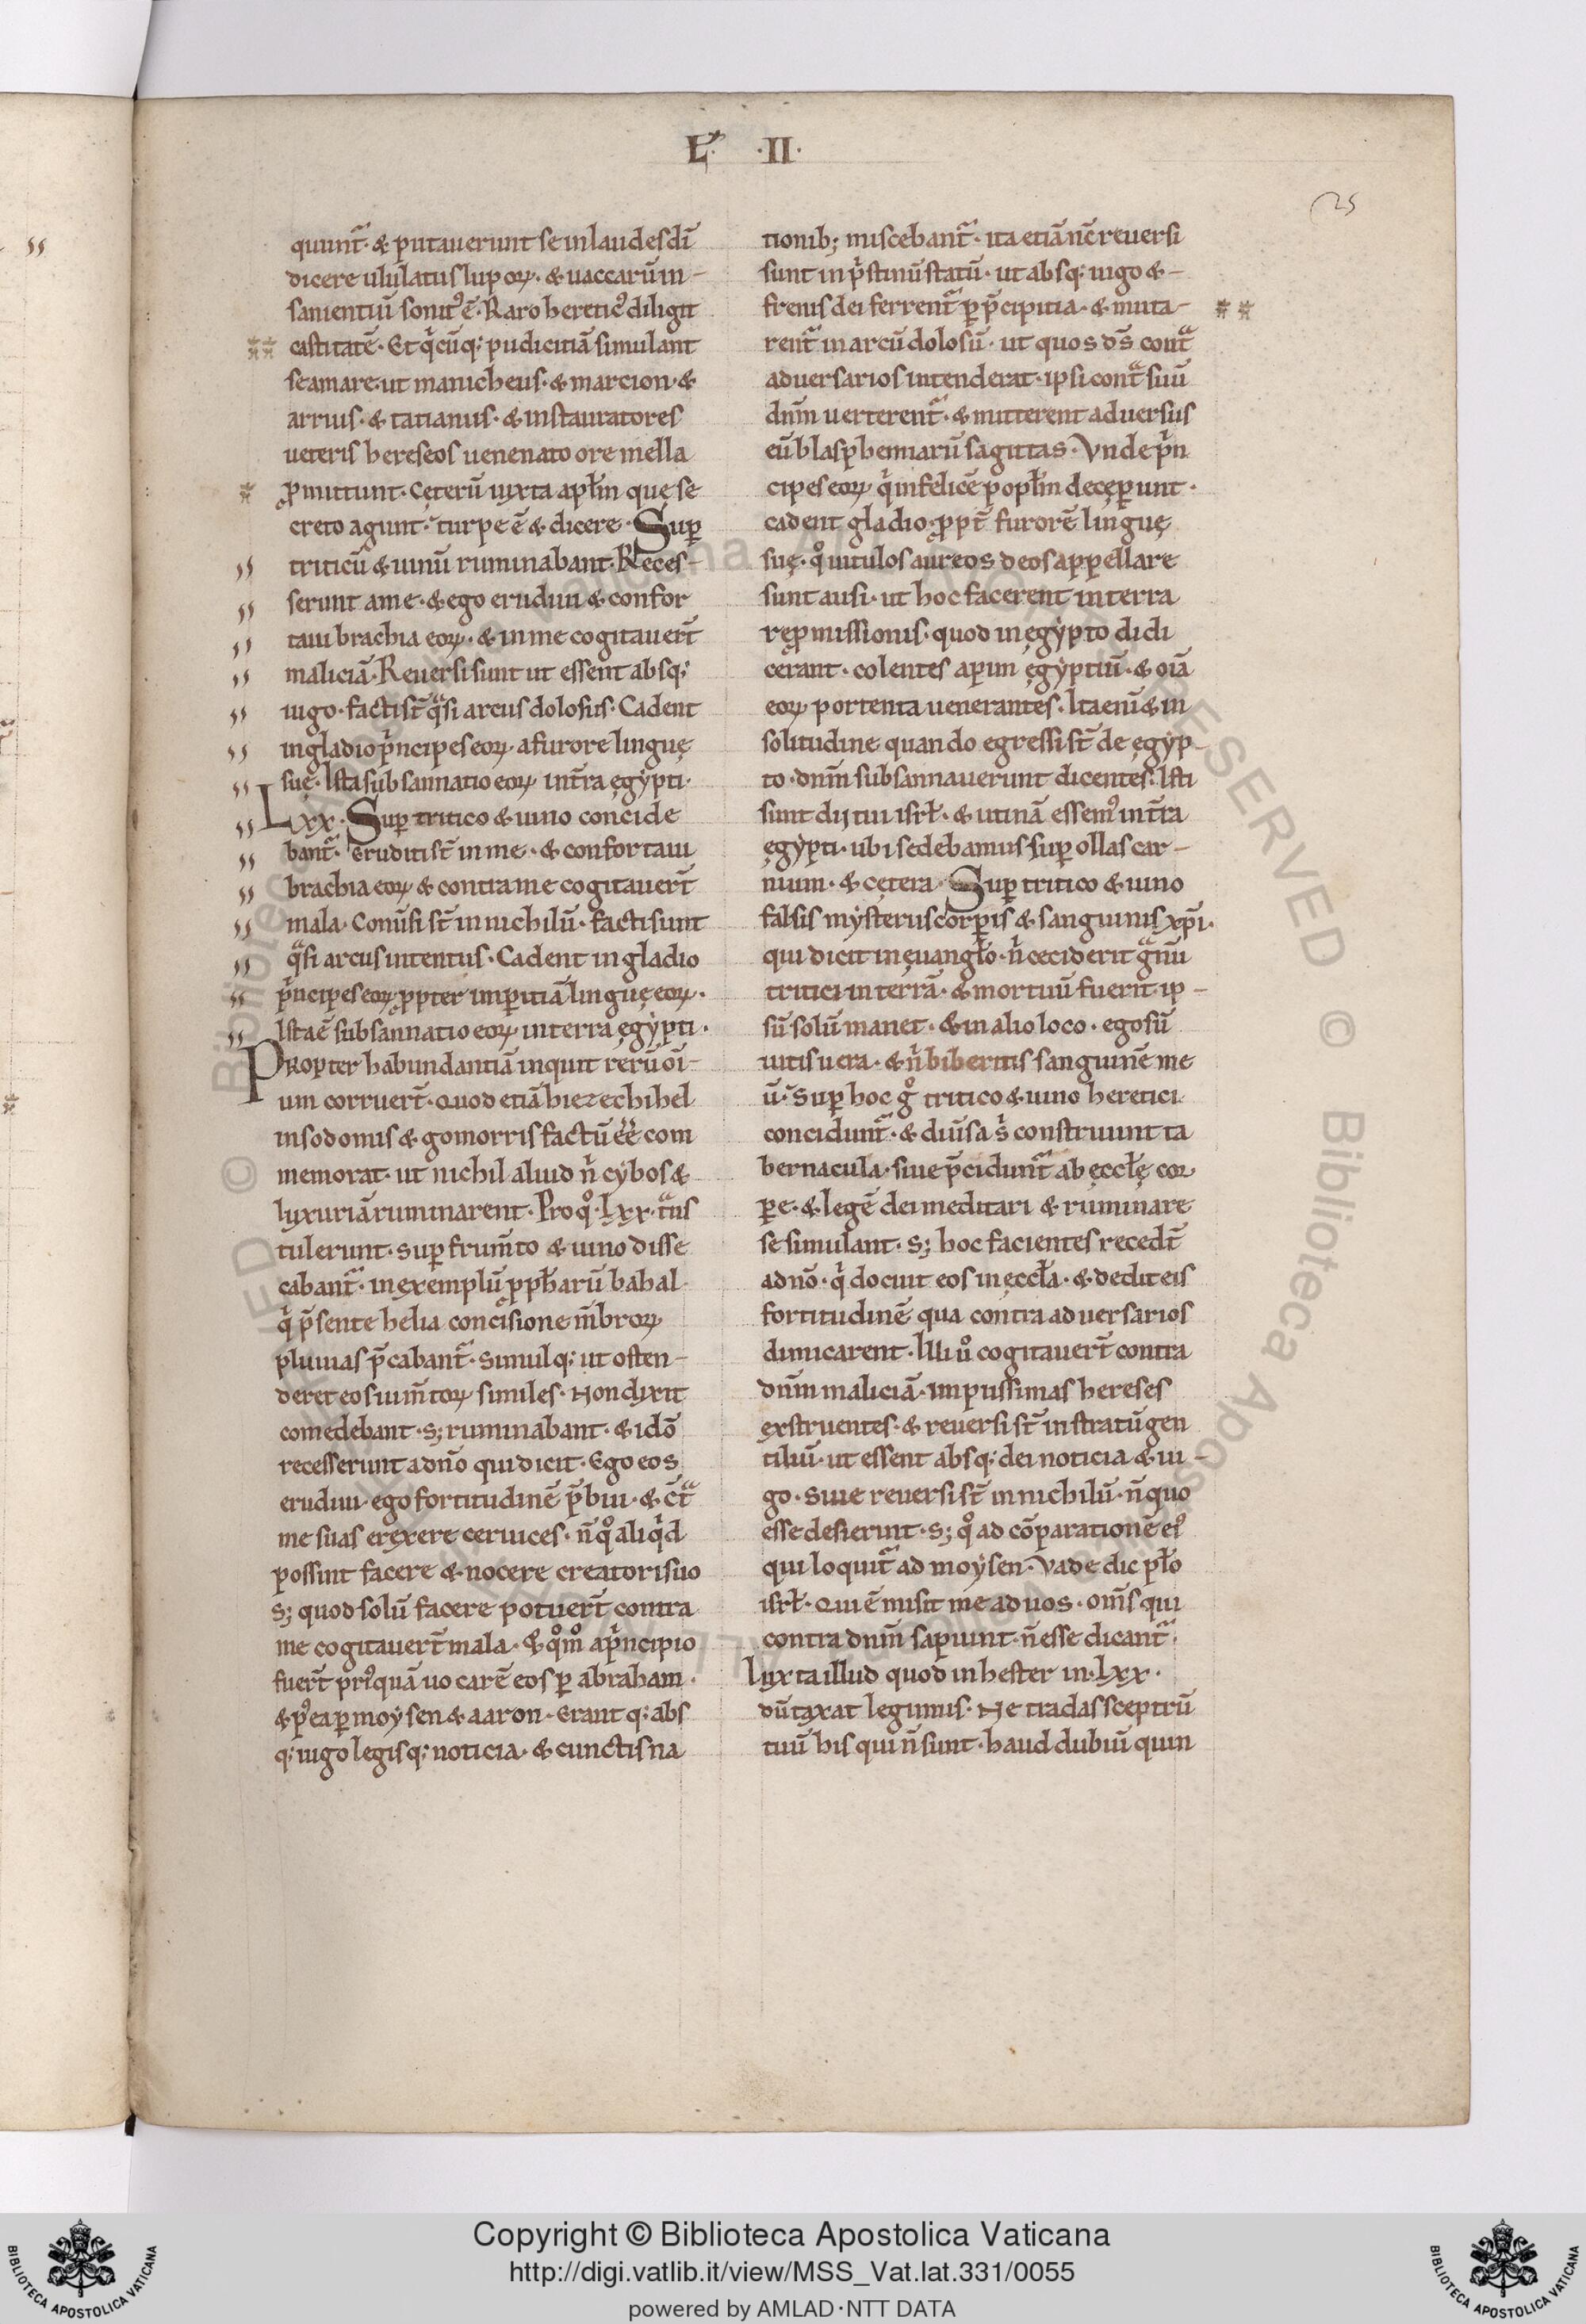 L̃ · II ·
25
quunt᷑ · & putauerunt se in laudes dī
dicere ululatus lupoꝝ · & uaccarū in-
sanientiū sonitꝰ ē · Raro heretic᷒ diligit
castitatē · Et qͥcūq; pudicitiā simulant
se amare · ut manicheus · & marcion · &
arrius · & tatianus · & instauratores
ueteris hereseos uenenato ore mella
ꝓmittunt · Cęterū iuxta apłm quę se
creto agunt · turpe ē & dicere · Suꝑ
triticū & uinū ruminabant · Reces-
serunt a me · & ego erudiui & confor
taui brachia eoꝝ · & in me cogitauer̄t
maliciā · Reuersi sunt ut essent absq;
iugo · facti st̄ qͣsi arcus dolosus · Cadent
in gladio pͥncipes eoꝝ · a furore linguę
suę · Ista subsannatio eoꝝ in t̄ra ęgẏpti ·
Lxx · Suꝑ tritico & uino concide
bant᷑ · Eruditi st̄ in me · & confortaui
brachia eoꝝ & contra me cogitauer̄t
mala · Conūsi st̄ in nichilū · facti sunt
qͣsi arcus intentus · Cadent in gladio
pͥncipes eoꝝ ꝓpter imꝑitiā linguę eoꝝ ·
Ista ē subsannatio eoꝝ in terra ęgẏpti ·
Propter habundantiā inquit rerū oī-
um corruer̄t · Quod etiā hiezechihel
in sodomis & gomorris factū eē com
memorat · ut nichil aliud nͥ cẏbos &
luxuriā ruminarent · Pro qͦ · Lxx · tͣns
tulerunt · suꝑ frum̄to & uino disse
cabant᷑ · in exemplū ꝓpħarū bahal
qͥ p̄sente helia concisione m̄broꝝ
pluuias p̄cabant᷑ · Simulq; ut osten-
deret eos ium̄toꝝ similes · Non dixit
comedebant · s; ruminabant · & idō
recesserunt a dn̄o qui dicit · Ego eos
erudiui · ego fortitudinē p̄bui · & c̄tͣ
me suas erexere ceruices · n̄ qͦ aliqͥd
possint facere & nocere creatori suo
s; quod solū facere potuer̄t contra
me cogitauer̄t mala · & qͦmͦ a pͥncipio
fuer̄t priꝰquā uocarē eos ꝑ abraham ·
& pꝰea ꝑ moẏsen & aaron · Erant q; abs
q; iugo legisq; noticia · & cunctis na
tionib; miscebant᷑ · ita etiā nc̄ reuersi
sunt in pͥstinū statū · ut absq; iugo &-
frenis dei ferrent᷑ ꝑ p̄cipitia · & muta-
rent᷑ in arcū dolosū · ut quos ds̄ contͣ
aduersarios intenderat · ipsi contͣ suū
dnm̄ uerterent᷑ · & mitterent aduersus
eū blasphemiarū sagittas · Vnde pͥn
cipes eoꝝ qͥ infelicē popłm deceꝑunt ·
cadent gladio · ꝓpt̄ furorē linguę
suę · qͦ uitulos aureos deos appellare
sunt ausi · ut hoc facerent in terra
reꝓmissionis · quod in egẏpto didi
cerant · colentes apim ęgẏptiū · & oīa
eoꝝ portenta uenerantes · Ita enī & in
solitudine quando egressi st̄ de ęgẏp-
to · dnm̄ subsannauerunt dicentes · Isti
sunt dij tui isrł · & utinā essemꝰ in t̄ra
ęgẏpti · ubi sedebamus suꝑ ollas car-
nium · & cętera · Suꝑ tritico & uino
falsis mẏsteriis corꝑis & sanguinis xp̄i ·
qui dicit in ęuangło · nͥ ceciderit gͣnū
tritici in terrā · & mortuū fuerit · ip-
sū solū manet · & in alio loco · ego sū
uitis uera · & nͥ biberitis sanguinē me
ū · Suꝑ hoc gͦ tritico & uino heretici
concidunt᷑ · & diūsa sͥ construunt ta
bernacula · siue p̄cidunt᷑ ab ęccłę cor
ꝑe · & legē dei meditari & ruminare
se simulant · s; hoc facientes recedt̄
a dn̄o · qͥ docuit eos in ęccła · & dedit eis
fortitudinē qua contra aduersarios
dimicarent · Illi uͦ cogitauer̄t contra
dnm̄ maliciā · impiissimas hereses
exstruentes · & reuersi st̄ in stratū gen
tiliū · ut essent absq; dei noticia & iu-
go · Siue reuersi st̄ in nichilū · n̄ quo
esse desierint · s; qͦ ad cōparationē eiꝰ
qui loquit᷑ ad moẏsen · Vade dic pło
isrł · Qui ē misit me ad uos · om̄s qui
contra dnm̄ sapiunt · n̄ esse dicant᷑ ·
Iuxta illud quod in hester in · Lxx ·
dūtaxat legimus · Ne tradas sceptrū
tuū his qui n̄ sunt · haud dubiū quin
Copyright © Biblioteca Apostolica Vaticana
http://digi.vatlib.it/view/MSS_Vat.lat.331/0055
powered by AMLAD·NTT DATA
BIBLIOTECA APOSTOLICA VATICANA
BIBLIOTECA APOSTOLICA VATICANA